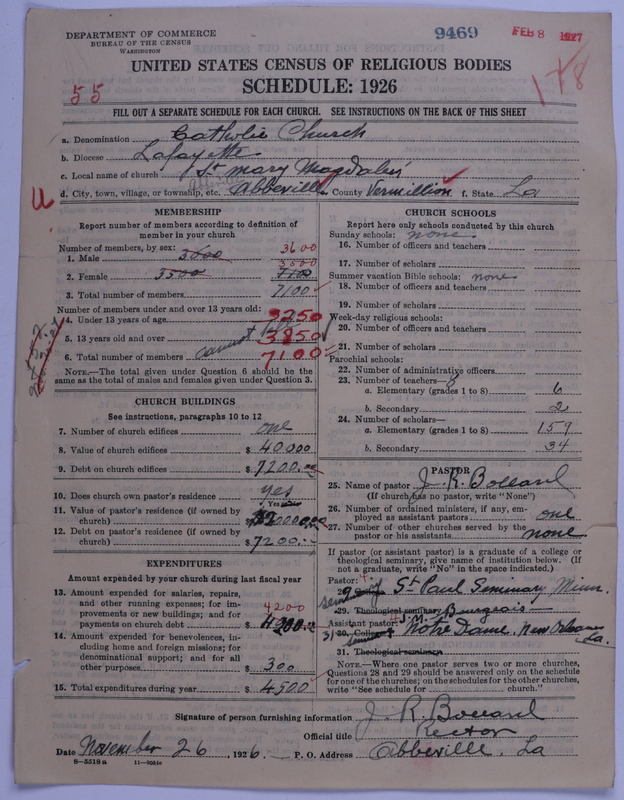 DEPARTMENT OF COMMERCE
BUREAU OF THE CENSUS
WASHINGTON
9469
FEB 8 1927
UNITED STATES CENSUS OF RELIGIOUS BODIES
SCHEDULE: 1926
55
118
FILL OUT A SEPARATE SCHEDULE FOR EACH CHURCH. SEE INSTRUCTIONS ON THE BACK OF THIS SHEET
a. Denomination Catholic Church
b. Diocese Lafayette
c. Local name of church St Mary Magdalen
d. City, town, village, or township, etc. Abbeville e. County Vermillion f. State La
U
MEMBERSHIP
Report number of members according to definition of
member in your church
Number of members, by sex:
3600
1. Male 3000
3500
2. Female 3500 7100
3. Total number of members 7100
Number of members under and over 13 years old:
4. Under 13 years of age 3250
5. 13 years old and over cannot tell 3850
6. Total number of members 7100
NOTE.—The total given under Question 6 should be the
same as the total of males and females given under Question 3.
CHURCH BUILDINGS
See instructions, paragraphs 10 to 12
7. Number of church edifices one
8. Value of church edifices $ 40000
9. Debt on church edifices $ 7200.
10. Does church own pastor's residence yes
Yes or No
11. Value of pastor's residence (if owned by
church) $
12. Debt on pastor's residence (if owned by
church) $ 7200.
EXPENDITURES
Amount expended by your church during last fiscal year
13. Amount expended for salaries, repairs,
and other running expenses; for im-
provements or new buildings; and for
payments on church debt $ 4200
14. Amount expended for benevolences, in-
cluding home and foreign missions; for
denominational support; and for all
other purposes $ 300
15. Total expenditures during year $ 4500.
CHURCH SCHOOLS
Report here only schools conducted by this church
Sunday schools: none
16. Number of officers and teachers
17. Number of scholars
Summer vacation Bible schools: none
18. Number of officers and teachers
19. Number of scholars
Week-day religious schools:
20. Number of officers and teachers
21. Number of scholars
Parochial schools:
22. Number of administrative officers
23. Number of teachers— 8
a. Elementary (grades 1 to 8) 6
b. Secondary 2
24. Number of scholars—
a. Elementary (grades 1 to 8) 157
b. Secondary 34
PASTOR
25. Name of pastor J. R. Bollard
(If church has no pastor, write "None")
26. Number of ordained ministers, if any, em-
ployed as assistant pastors one
27. Number of other churches served by the
pastor or his assistants none
If pastor (or assistant pastor) is a graduate of a college or
theological seminary, give name of institution below. (If
not a graduate, write "No" in the space indicated.)
Pastor:
St Paul Seminary, Minn.
29. Theological seminary
Assistant pastor: J. M. Bourgeois
30. College Notre Dame, New Orleans
La.
31. Theological seminary
NOTE.—Where one pastor serves two or more churches,
Questions 28 and 29 should be answered only on the schedule
for one of the churches; on the schedules for the other churches,
write "See schedule for church."
Signature of person furnishing information J. R. Bollard
Official title Rector
Date November 26, 1926. P. O. Address Abbeville, La
8—5518a 11—9051c